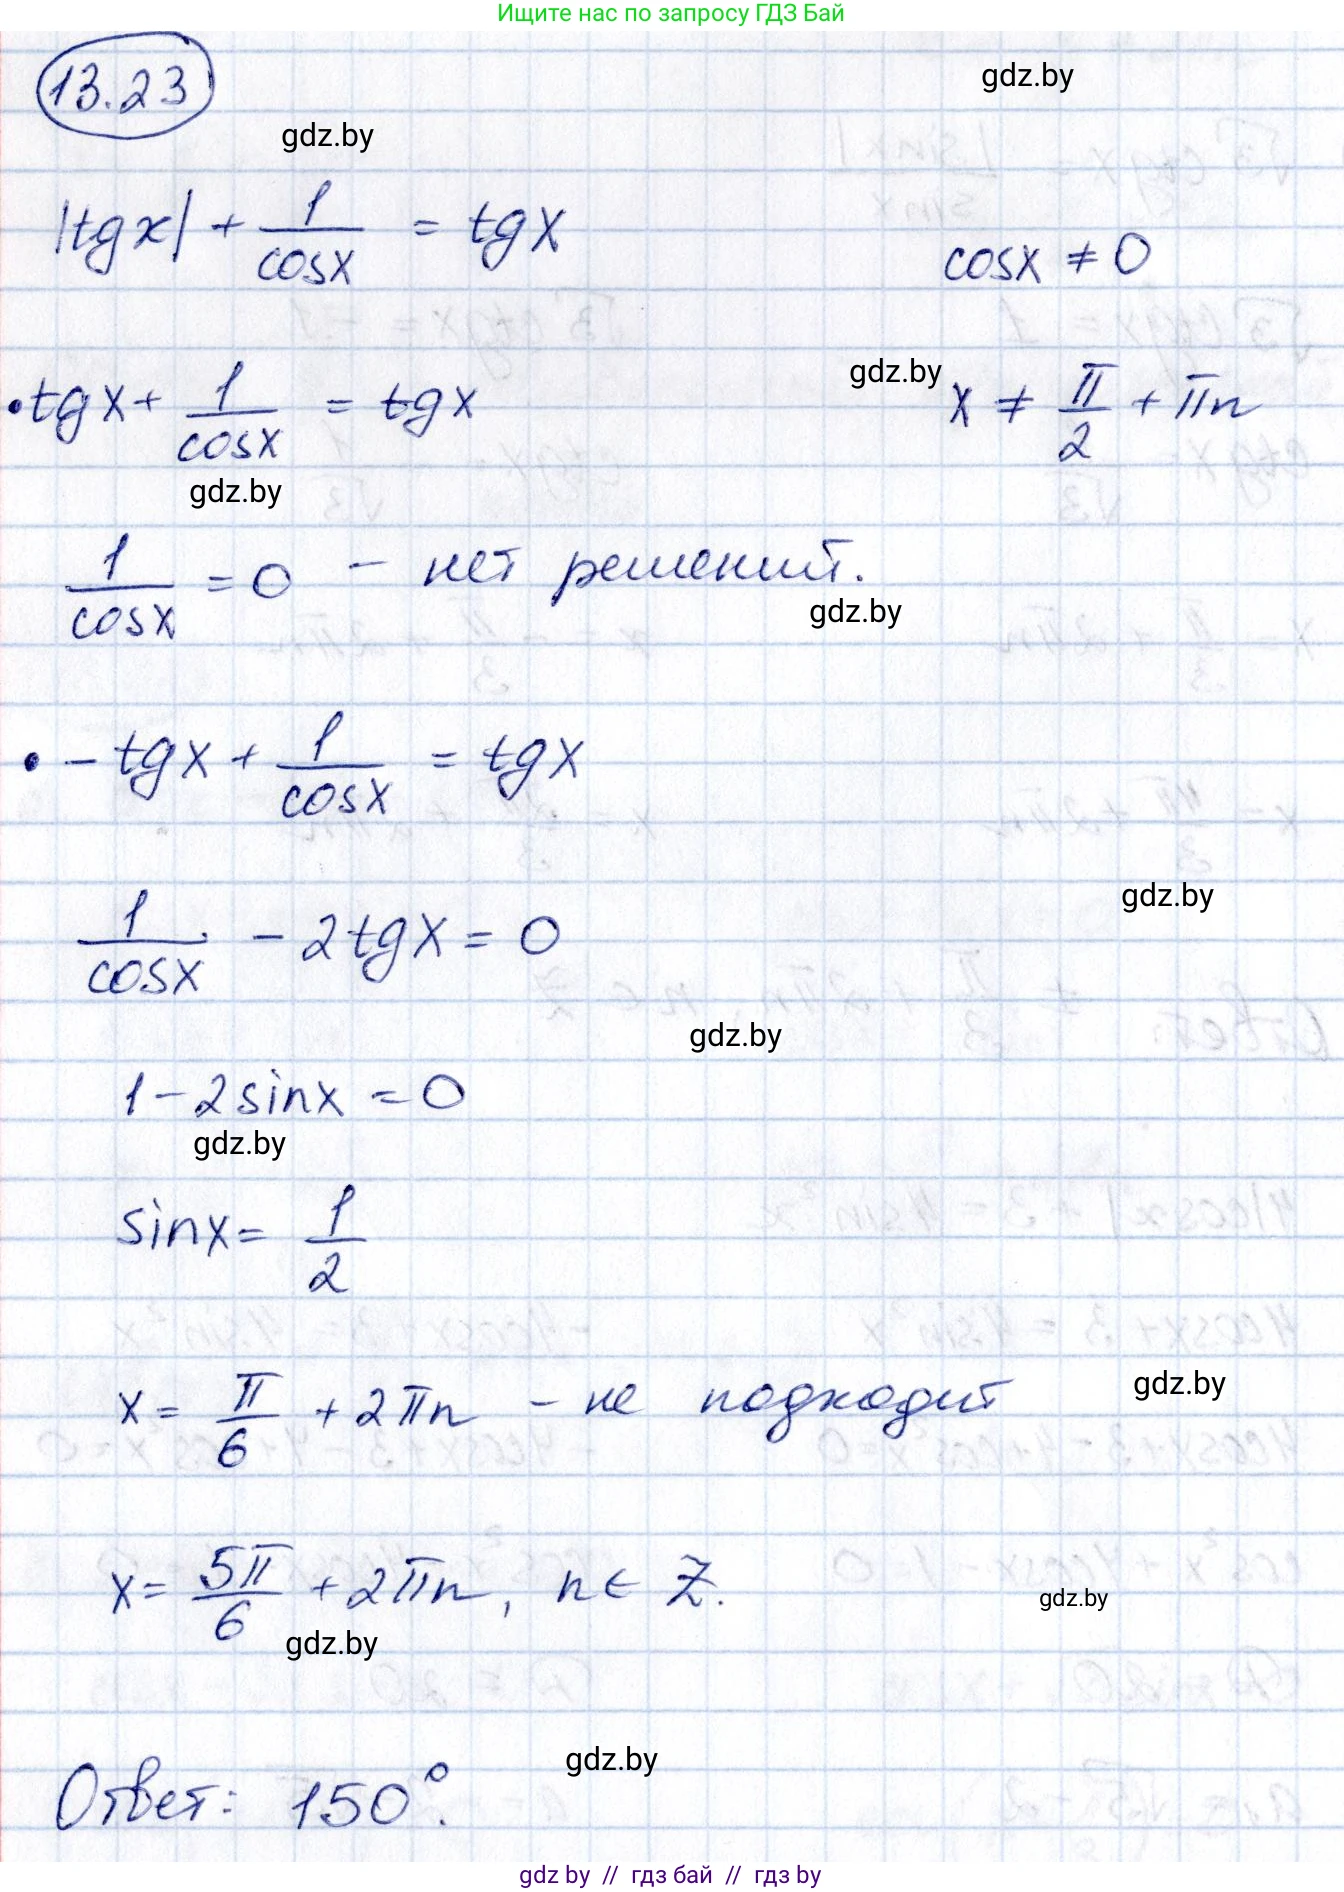 Ищите нас по запросу ГДЗ Бай
13.23
gdz.by
gdz.by
|tgx| + 1/cosx = tgx
cosx ≠ 0
• tgx + 1/cosx = tgx
gdz.by
x ≠ π/2 + πn
gdz.by
1/cosx = 0 – нет решений.
gdz.by
• – tgx + 1/cosx = tgx
1/cosx – 2tgx = 0
gdz.by
gdz.by
1 – 2sinx = 0
gdz.by
sinx = 1/2
x = π/6 + 2πn – не подходит
gdz.by
x = 5π/6 + 2πn, n ∈ Z.
gdz.by
gdz.by
gdz.by
Ответ: 150°.
gdz.by // гдз бай // гдз by